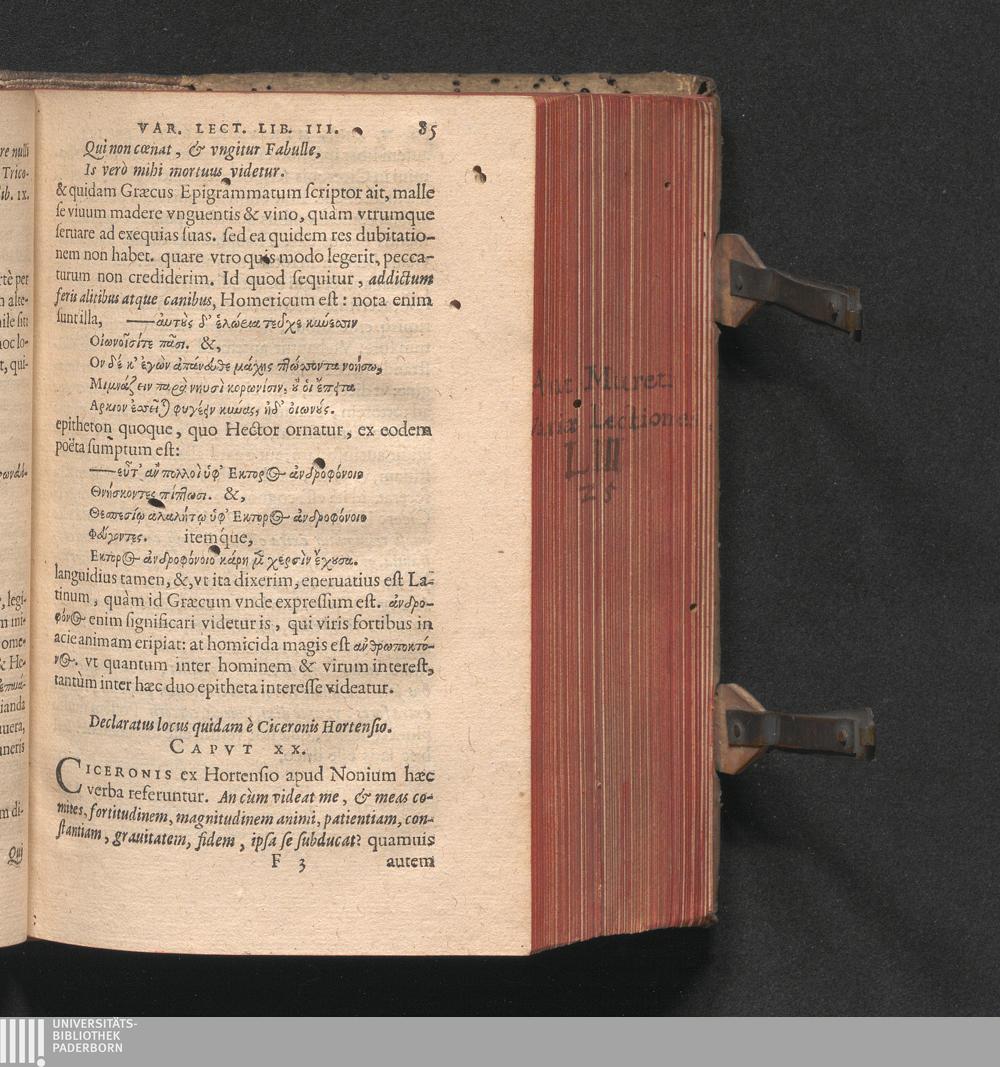 VAR. LECT. LIB. III. 85
Qui non cœnat, & vngitur Fabulle,
Is verò mihi mortuus videtur.
& quidam Græcus Epigrammatum scriptor ait, malle
se viuum madere vnguentis & vino, quàm vtrumque
seruare ad exequias suas. sed ea quidem res dubitatio-
nem non habet. quare vtro quis modo legerit, pecca-
turum non crediderim. Id quod sequitur, addictum
feris alitibus atque canibus, Homericum est: nota enim
sunt illa, —αυτὺς δ' ἑλώρια τεῦχε κύνεσσιν
Οἰωνοῖσίτε πᾶσι. &,
Ον δέ κ' ἐγὼν ἀπάνευθε μάχης πτώσσοντα νοήσω,
Μιμνάζειν παρὰ νηυσὶ κορωνίσιν, ὔ ὁι ἔπειτα
Αρκιον ἐσσεῖται φυγέειν κύνας, ἠδ' ὀιωνύς.
epitheton quoque, quo Hector ornatur, ex eodem
poëta sumptum est:
—εὖτ' ἂν πολλοὶ ὑφ' Εκτορος ἀνδροφόνοιο
Θνήσκοντες πίπτωσι. &,
Θεσπεσίῳ ἀλαλήτῳ ὑφ' Εκτορος ἀνδροφόνοιο
Φεύγοντες. itemque,
Εκτορος ἀνδροφόνοιο κάρη μετὰ χερσὶν ἔχυσα.
languidius tamen, &, vt ita dixerim, eneruatius est La-
tinum, quàm id Græcum vnde expressum est. ἀνδρο-
φόνος enim significari videtur is, qui viris fortibus in
acie animam eripiat: at homicida magis est ἀνθρωποκτό-
νος. vt quantum inter hominem & virum interest,
tantùm inter hæc duo epitheta interesse videatur.
Declaratus locus quidam è Ciceronis Hortensio.
CAPVT XX.
CICERONIS ex Hortensio apud Nonium hæc
verba referuntur. An cùm videat me, & meas co-
mites, fortitudinem, magnitudinem animi, patientiam, con-
stantiam, grauitatem, fidem, ipsa se subducat? quamuis
F 3 autem
Ant. Muret.
Lectiones
LIII
25
UNIVERSITÄTS-
BIBLIOTHEK
PADERBORN